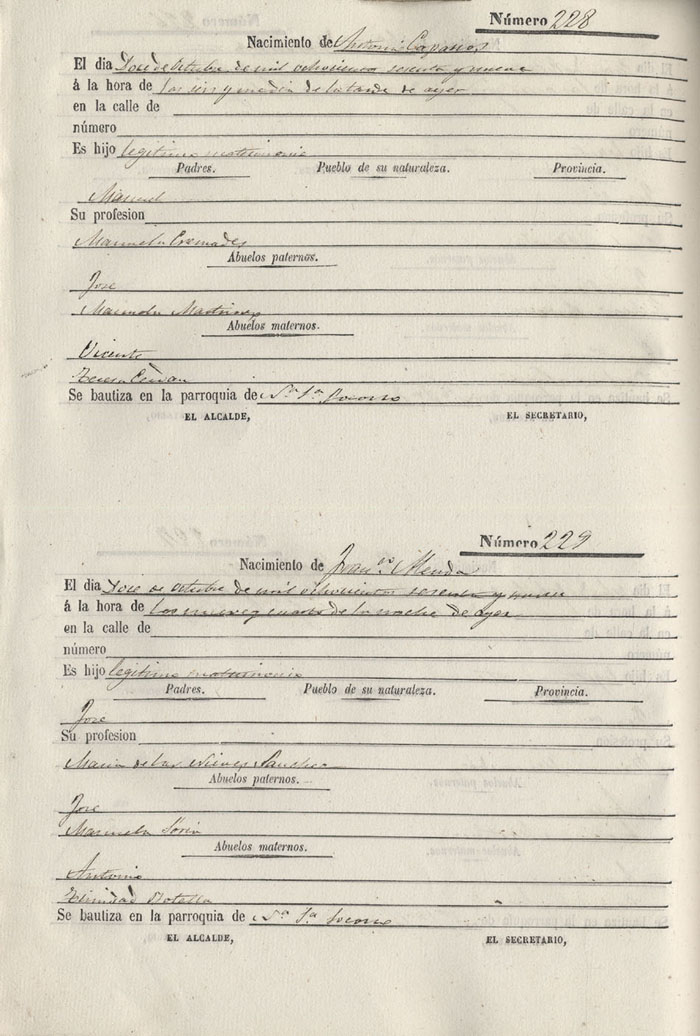 Número 228
Nacimiento de Antonio Caparros
El dia Doce de Octubre de mil ochocientos sesenta y nueve
á la hora de las seis y media de la tarde de ayer
en la calle de
número
Es hijo legitimo matrimonio
Padres. Pueblo de su naturaleza. Provincia.
Manuel
Su profesion
Manuela Cremades
Abuelos paternos.
Jose
Manuela Martinez
Abuelos maternos.
Vicente
Teresa
Se bautiza en la parroquia de Nª Sª Socorro
EL ALCALDE, EL SECRETARIO,
Número 229
Nacimiento de Franco
El dia Doce de Octubre de mil ochocientos sesenta y nueve
á la hora de las nueve y cuarto de la noche de ayer
en la calle de
número
Es hijo legitimo matrimonio
Padres. Pueblo de su naturaleza. Provincia.
Jose
Su profesion
Maria de las Nieves Sanchez
Abuelos paternos.
Jose
Manuela Soria
Abuelos maternos.
Antonio
Trinidad Botella
Se bautiza en la parroquia de Nª Sª Socorro
EL ALCALDE, EL SECRETARIO,